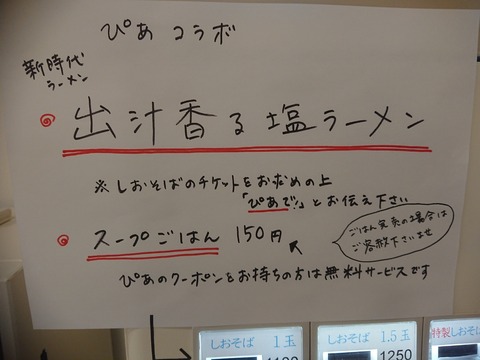 ぴあコラボ
新時代
ラーメン
出汁香る塩ラーメン
※しおそばのチケットをお求めの上
「ぴあで!」とお伝え下さい
スープごはん 150円
ごはん完売の場合は
ご容赦下さいませ
ぴあのクーポンをお持ちの方は無料サービスです
しおそば 1玉
しおそば 1.5玉
1250
特製しおそば